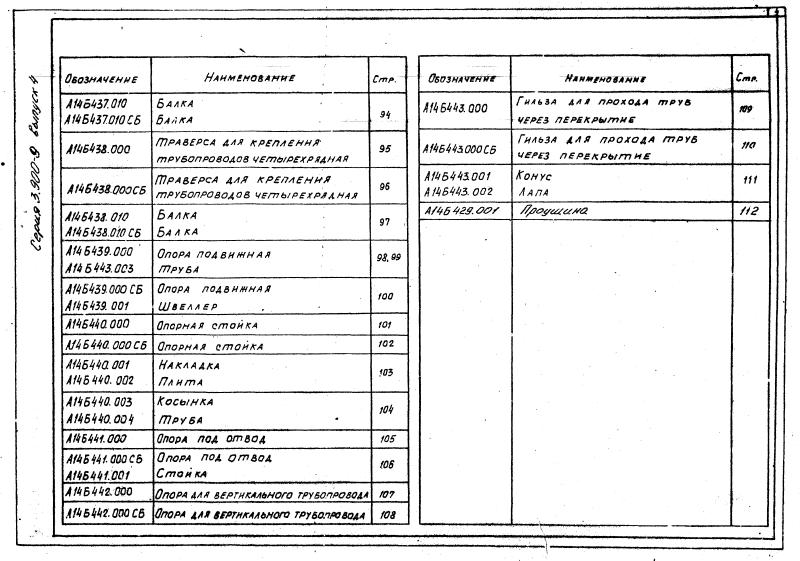 Серия 3.900-9 выпуск 4
Обозначение Наименование Стр.
А14Б437.010 Балка 94
А14Б437.010 СБ Балка
А14Б438.000 Траверса для крепления трубопроводов четырехрядная 95
А14Б438.000СБ Траверса для крепления трубопроводов четырехрядная 96
А14Б438.010 Балка 97
А14Б438.010 СБ Балка
А14Б439.000 Опора подвижная 98,99
А14Б443.003 Труба
А14Б439.000 СБ Опора подвижная 100
А14Б439.001 Швеллер
А14Б440.000 Опорная стойка 101
А14Б440.000 СБ Опорная стойка 102
А14Б440.001 Накладка 103
А14Б440.002 Плита
А14Б440.003 Косынка 104
А14Б440.004 Труба
А14Б441.000 Опора под отвод 105
А14Б441.000 СБ Опора под отвод 106
А14Б441.001 Стойка
А14Б442.000 Опора для вертикального трубопровода 107
А14Б442.000 СБ Опора для вертикального трубопровода 108
Обозначение Наименование Стр.
А14Б443.000 Гильза для прохода труб через перекрытие 109
А14Б443.000СБ Гильза для прохода труб через перекрытие 110
А14Б443.001 Конус 111
А14Б443.002 Лапа
А14Б429.001 Проушина 112